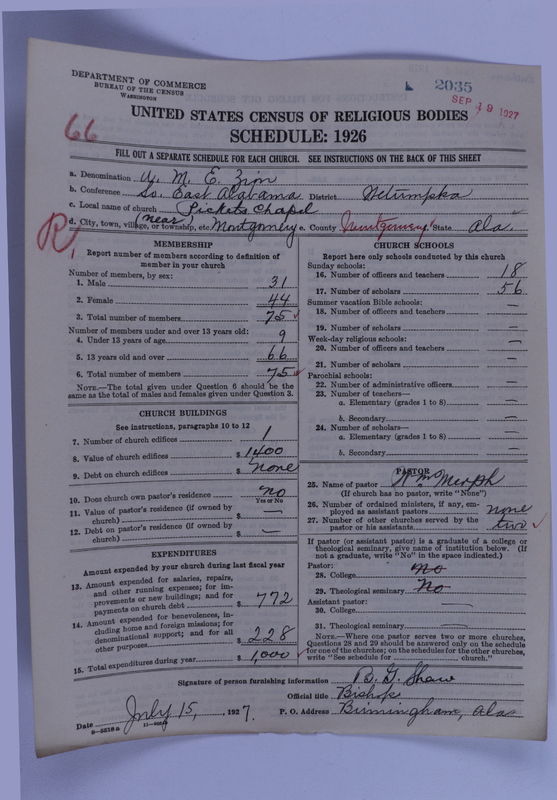 DEPARTMENT OF COMMERCE
BUREAU OF THE CENSUS
WASHINGTON
2035
SEP 19 1927
66
UNITED STATES CENSUS OF RELIGIOUS BODIES
SCHEDULE: 1926
FILL OUT A SEPARATE SCHEDULE FOR EACH CHURCH. SEE INSTRUCTIONS ON THE BACK OF THIS SHEET
a. Denomination A. M. E. Zion
b. Conference So. East Alabama District Wetumpka
c. Local name of church Pickets Chapel
d. City, town, village, or township, etc. (near) Montgomery e. County Montgomery State Ala.
R
MEMBERSHIP
Report number of members according to definition of
member in your church
Number of members, by sex:
1. Male 31
2. Female 44
3. Total number of members 75
Number of members under and over 13 years old:
4. Under 13 years of age 9
5. 13 years old and over 66
6. Total number of members 75
NOTE.—The total given under Question 6 should be the
same as the total of males and females given under Question 3.
CHURCH BUILDINGS
See instructions, paragraphs 10 to 12
7. Number of church edifices 1
8. Value of church edifices $ 1400
9. Debt on church edifices $ none
10. Does church own pastor's residence no
Yes or No
11. Value of pastor's residence (if owned by
church) $ —
12. Debt on pastor's residence (if owned by
church) $ —
EXPENDITURES
Amount expended by your church during last fiscal year
13. Amount expended for salaries, repairs,
and other running expenses; for im-
provements or new buildings; and for
payments on church debt $ 772
14. Amount expended for benevolences, in-
cluding home and foreign missions; for
denominational support; and for all
other purposes $ 228
15. Total expenditures during year $ 1,000
CHURCH SCHOOLS
Report here only schools conducted by this church
Sunday schools:
16. Number of officers and teachers 18
17. Number of scholars 56
Summer vacation Bible schools:
18. Number of officers and teachers —
19. Number of scholars —
Week-day religious schools:
20. Number of officers and teachers —
21. Number of scholars —
Parochial schools:
22. Number of administrative officers —
23. Number of teachers—
a. Elementary (grades 1 to 8) —
b. Secondary —
24. Number of scholars—
a. Elementary (grades 1 to 8) —
b. Secondary —
PASTOR
25. Name of pastor
(If church has no pastor, write "None")
26. Number of ordained ministers, if any, em-
ployed as assistant pastors none
27. Number of other churches served by the
pastor or his assistants two
If pastor (or assistant pastor) is a graduate of a college or
theological seminary, give name of institution below. (If
not a graduate, write "No" in the space indicated.)
Pastor:
28. College No
29. Theological seminary No
Assistant pastor:
30. College —
31. Theological seminary —
NOTE.—Where one pastor serves two or more churches,
Questions 28 and 29 should be answered only on the schedule
for one of the churches; on the schedules for the other churches,
write "See schedule for church."
Signature of person furnishing information B. G. Shaw
Official title Bishop
Date July 15, 1927. P. O. Address Birmingham, Ala